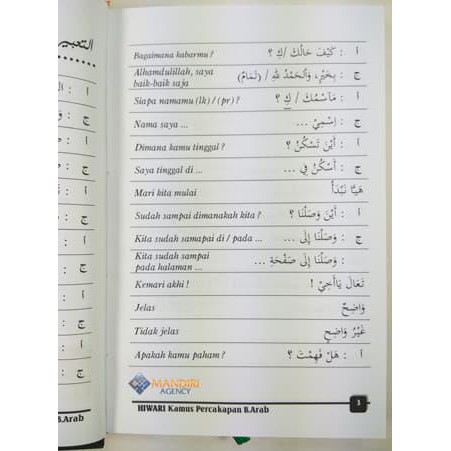 التعبير
Bagaimana kabarmu ? أ : كَيْفَ حَالُكَ /كِ ؟
Alhamdulillah, saya baik-baik saja ج : بِخَيْرٍ، وَالْحَمْدُ للهِ / (تَمَامٌ)
Siapa namamu (lk) / (pr) ? أ : مَاسْمُكَ / كِ ؟
Nama saya ... ج : اِسْمِيْ ...
Dimana kamu tinggal ? أ : أَيْنَ تَسْكُنُ ؟
Saya tinggal di ... ج : أَسْكُنُ فِي ...
Mari kita mulai هَيَّا نَبْدَأُ
Sudah sampai dimanakah kita ? أ : أَيْنَ وَصَلْنَا ؟
Kita sudah samapai di / pada ... ج : وَصَلْنَا إِلَى ...
Kita sudah sampai
pada halaman ... : وَصَلْنَا إِلَى صَفْحَةِ ...
Kemari akhi ! تَعَالَ يَاأَخِيْ !
Jelas وَاضِحٌ
Tidak jelas غَيْرُ وَاضِحٍ
Apakah kamu paham ? أ : هَلْ فَهِمْتَ ؟
MANDIRI
AGENCY
HIWARI Kamus Percakapan B.Arab
3
B.Arab